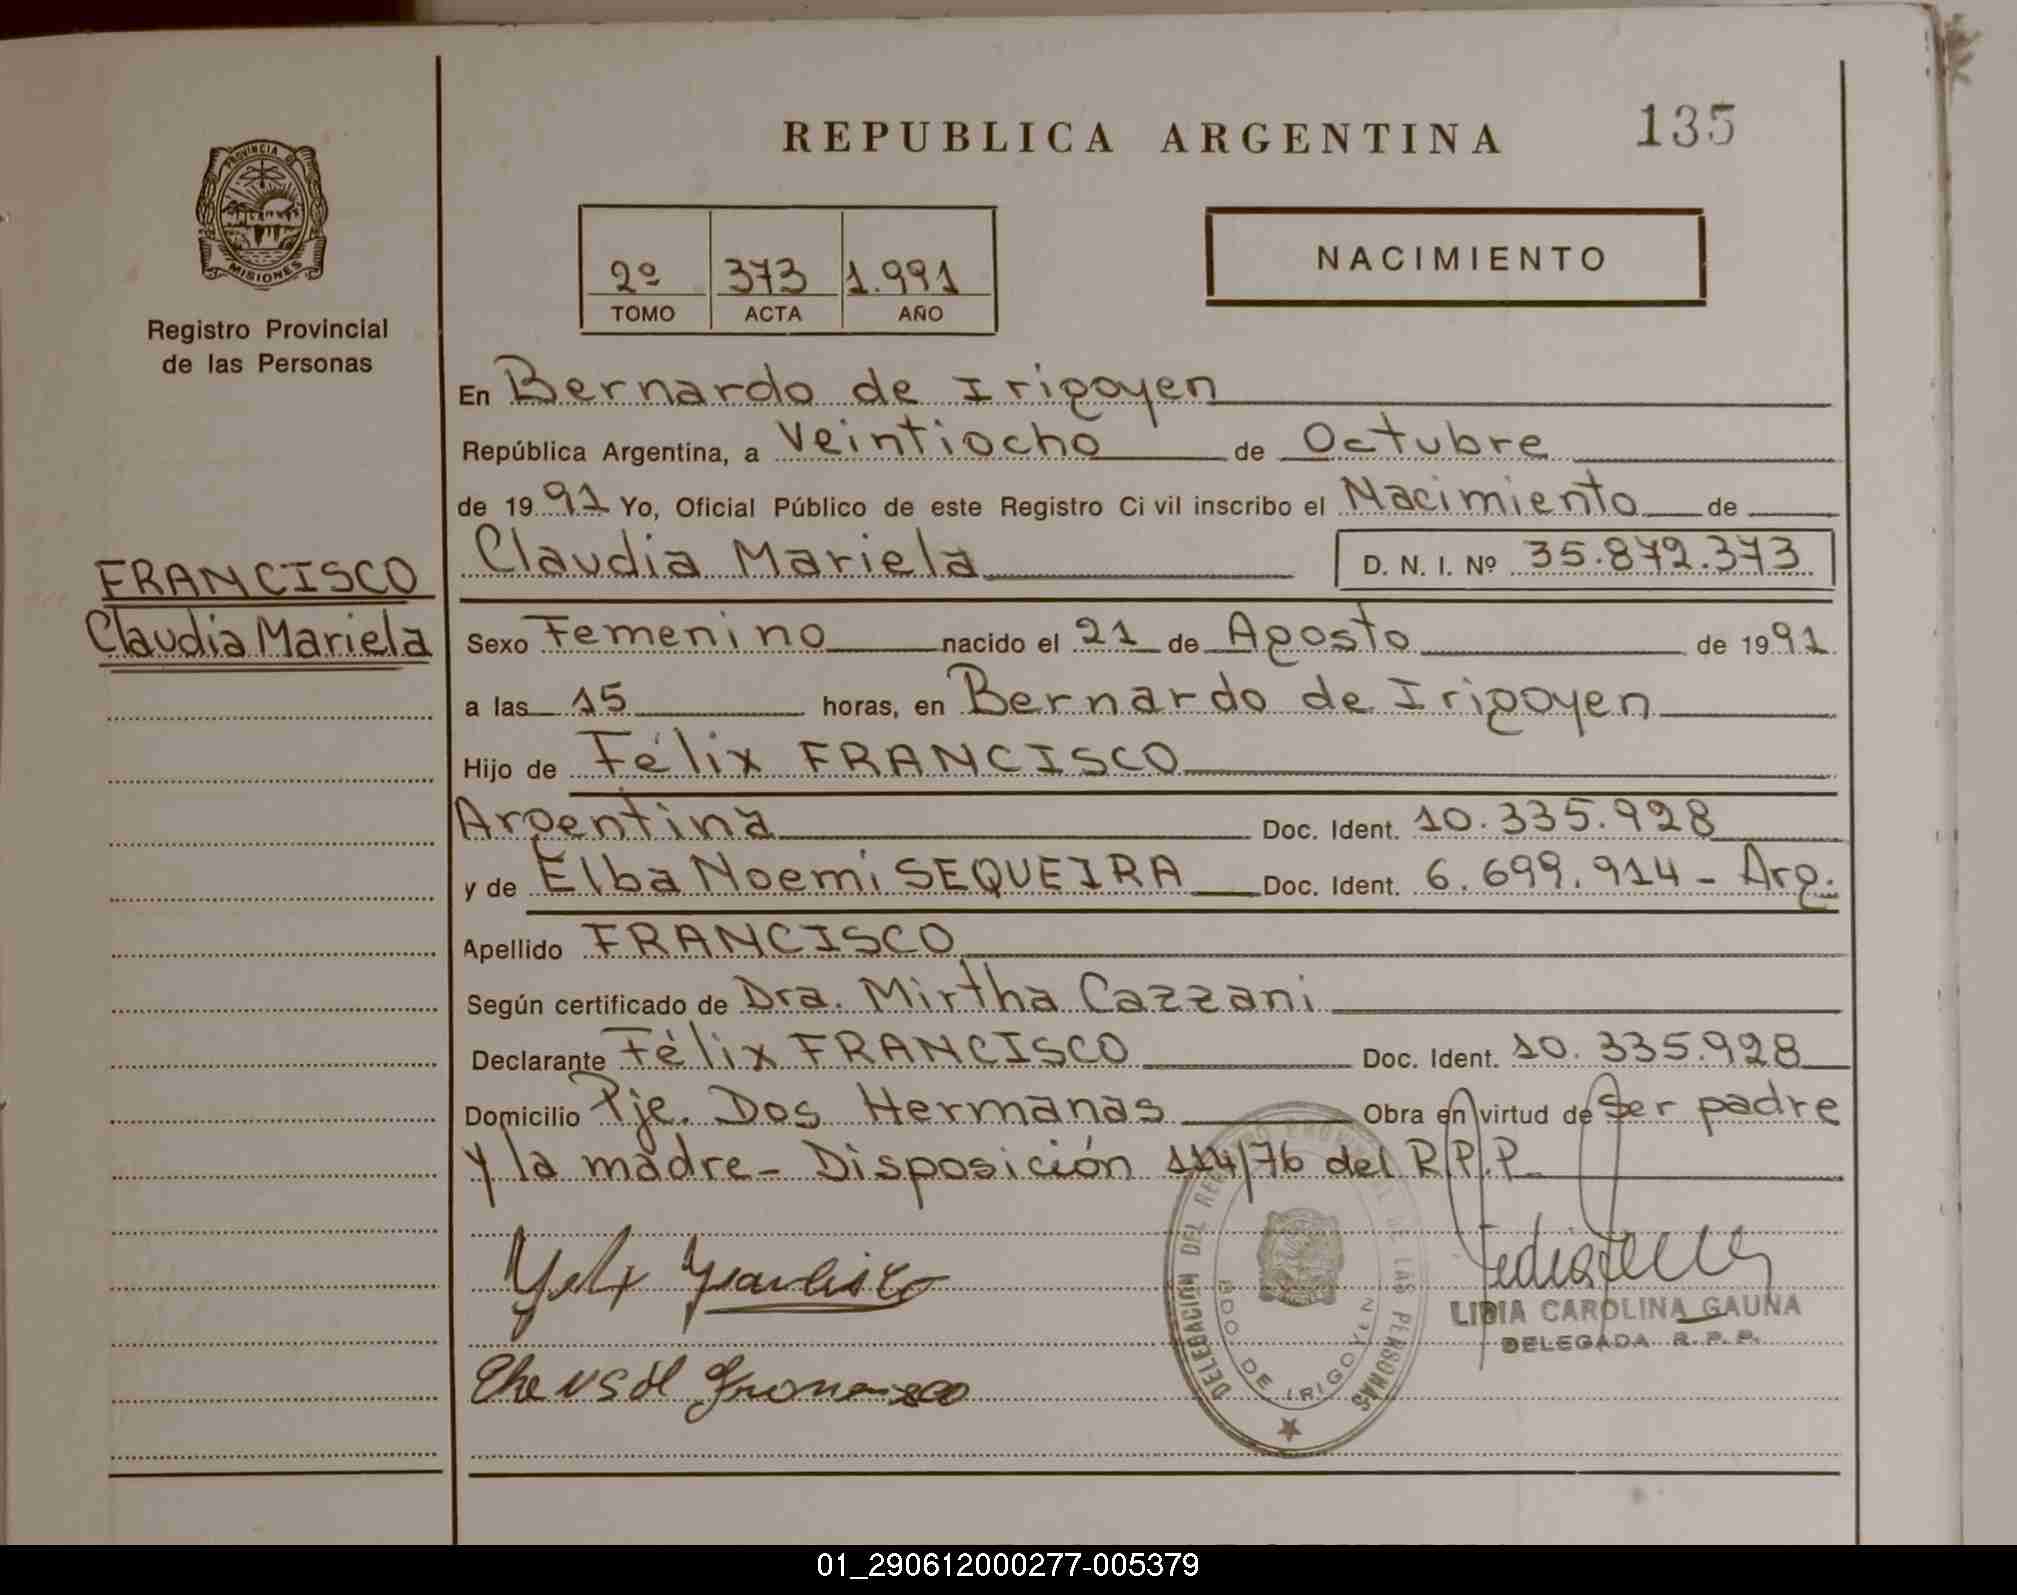 REPUBLICA ARGENTINA
135
PROVINCIA DE
MISIONES
Registro Provincial
de las Personas
2º 373 1.991
TOMO ACTA AÑO
NACIMIENTO
En Bernardo de Irigoyen
República Argentina, a Veintiocho de Octubre
de 1991 Yo, Oficial Público de este Registro Civil inscribo el Nacimiento de
FRANCISCO
Claudia Mariela
Claudia Mariela D. N. I. Nº 35.872.373
Sexo Femenino nacido el 21 de Agosto de 1991
a las 15 horas, en Bernardo de Irigoyen
Hijo de Félix FRANCISCO
Argentina Doc. Ident. 10.335.928
y de Elba Noemi SEQUEIRA Doc. Ident. 6.699.914 - Arg.
Apellido FRANCISCO
Según certificado de Dra. Mirtha Cazzani
Declarante Félix FRANCISCO Doc. Ident. 10.335.928
Domicilio Pje. Dos Hermanas Obra en virtud de Ser padre
y la madre - Disposición 114/76 del R.P.P.
DELEGACION DEL REGISTRO PROVINCIAL DE LAS PERSONAS
BDO DE IRIGOYEN
LIDIA CAROLINA GAUNA
DELEGADA R. P. P.
01_290612000277-005379